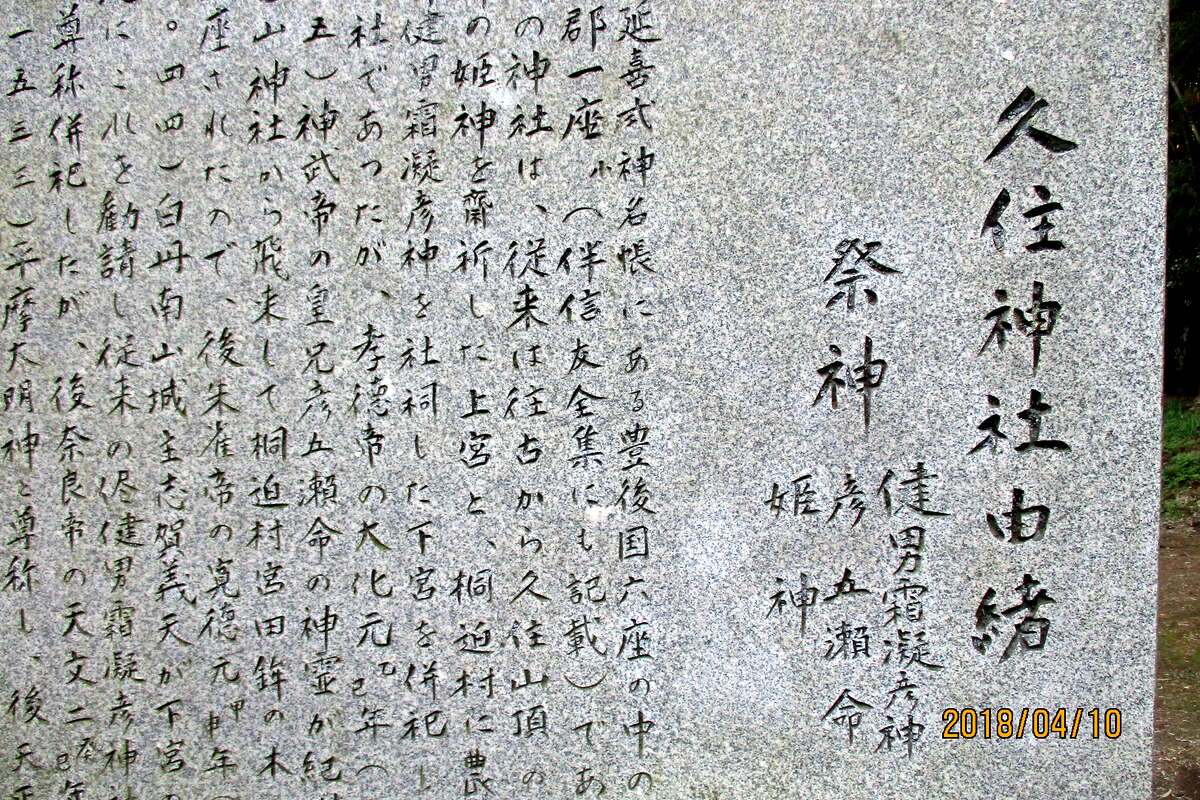 久住神社由緒
祭神
健男霜凝彦神
彦五瀬命
姫神
延喜式神名帳にある豊後国六座の中の
郡一座小（伴信友全集にも記載）であ
の神社は、従来は往古から久住山頂の
の姫神を齋祈した上宮と、桐迫村に農
健男霜凝彦神を社祠した下宮を併祀し
社であったが、孝徳帝の大化元乙巳年（
五）神武帝の皇兄彦五瀬命の神霊が紀
山神社から飛来して桐迫村宮田鉾の木
座されたので、後朱雀帝の寛徳元甲申年（
。四四）白丹南山城主志賀義天が下宮の
にこれを勧請し従来の侭健男霜凝彦神
尊称併祀したが、後奈良帝の天文二癸巳年
一五三三）平摩大明神と尊称し、後天正
2018/04/10